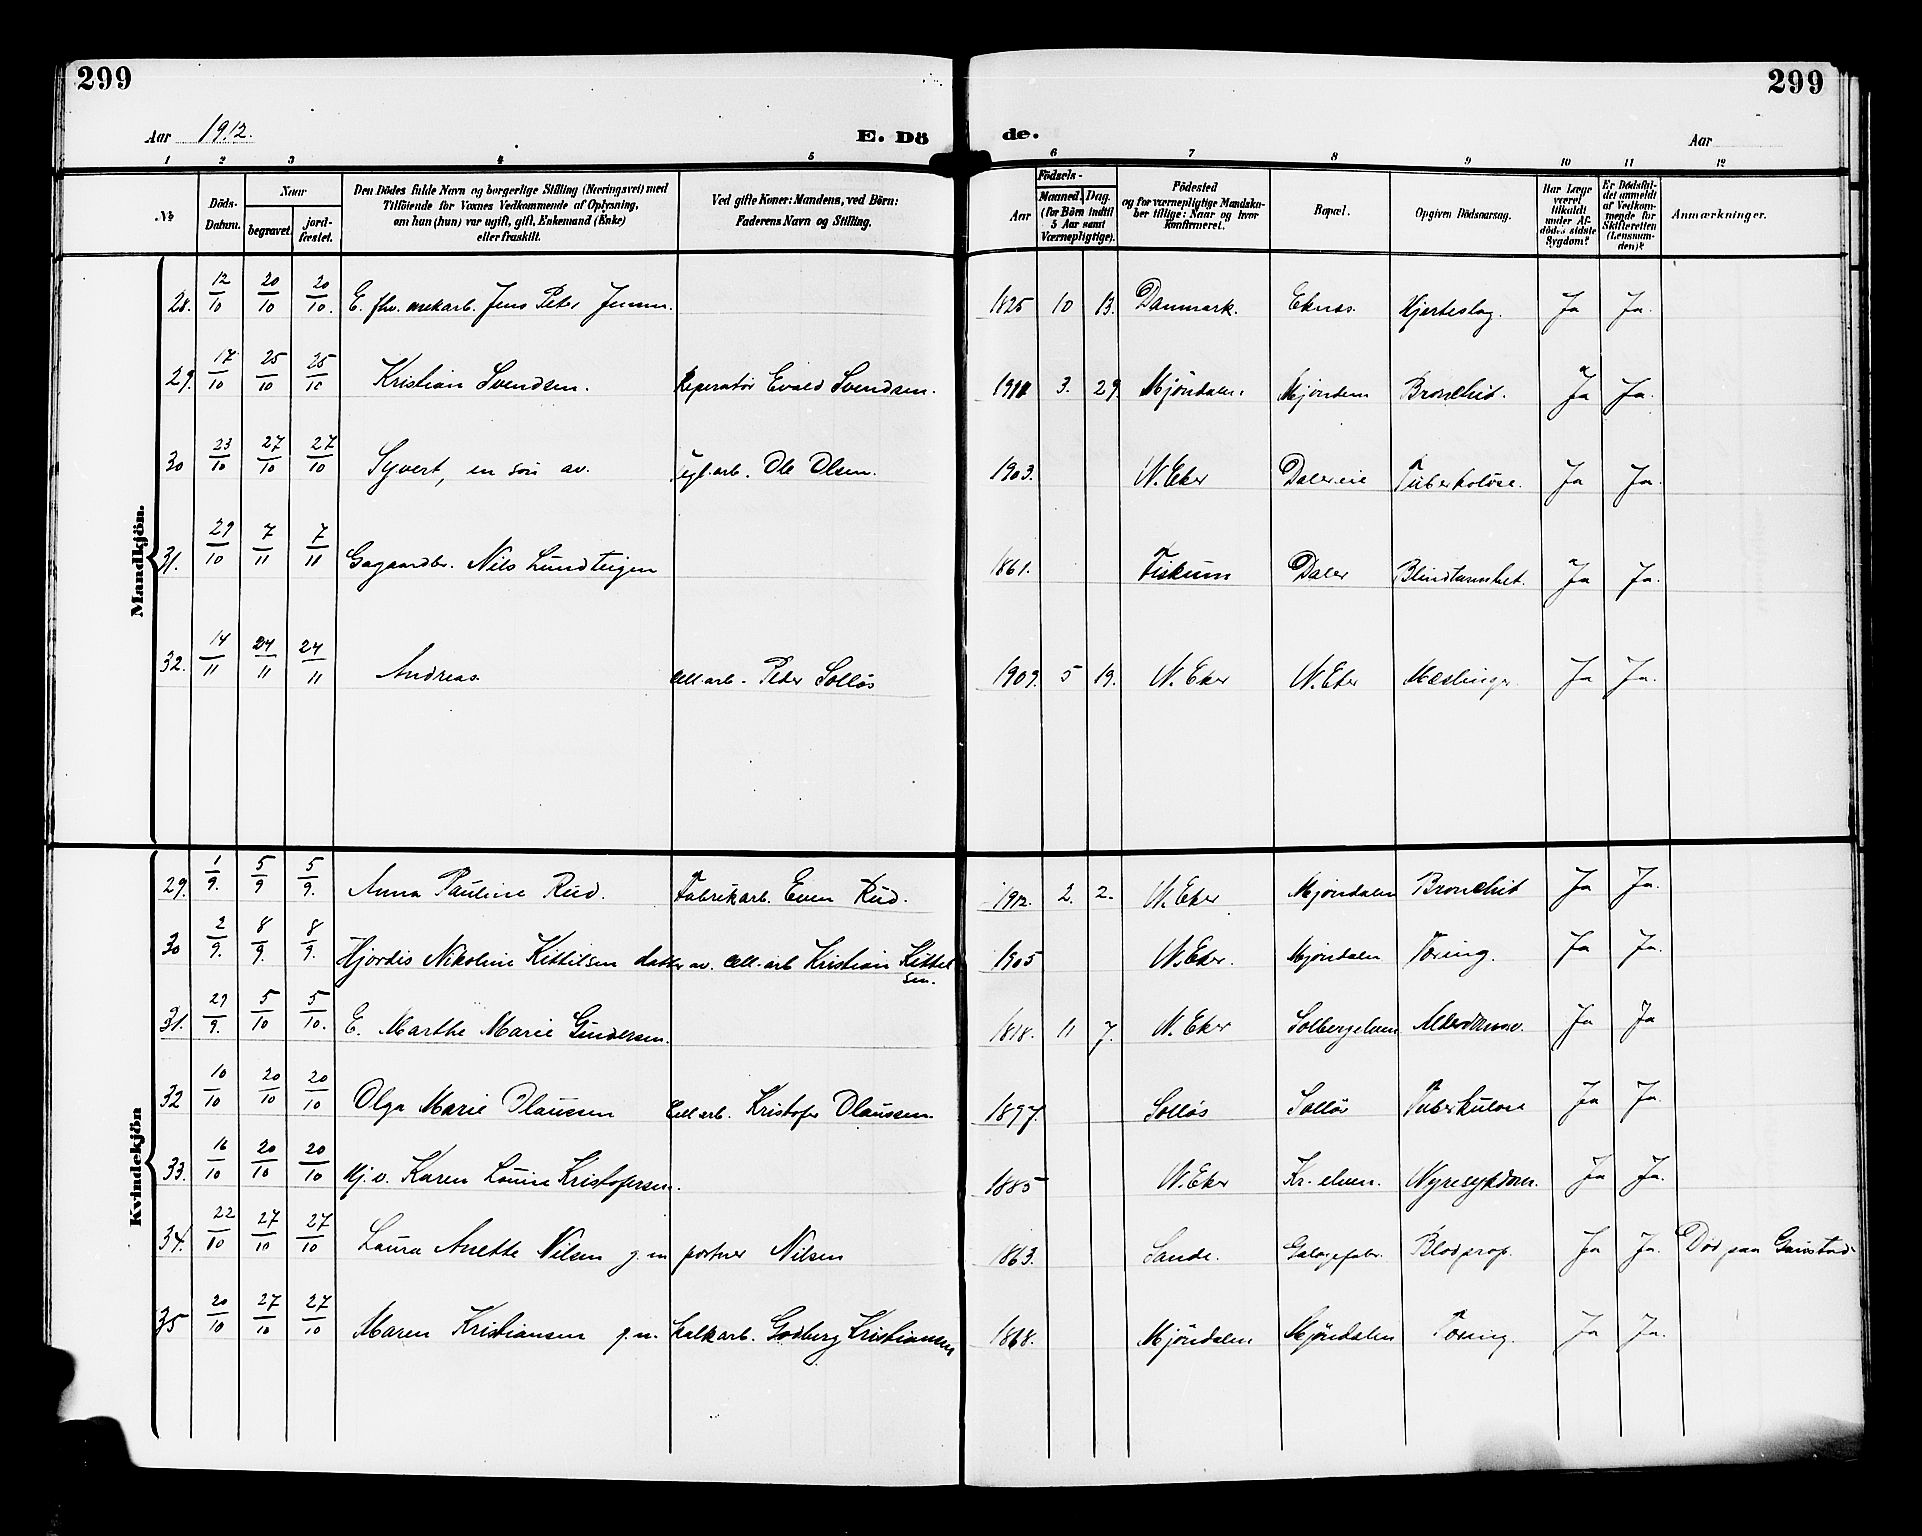 299
299
Aar 1912.
E. Dö
de.
Aar
1 2 3 4 5 6 7 8 9 10 11 12
№ Döds-Datum. Naar begravet. jord-fæstet. Den Dödes fulde Navn og borgerlige Stilling (Næringsvei) med Tilföiende for Voxnes Vedkommende af Oplysning, om han (hun) var ugift, gift, Enkemand (Enke) eller fraskilt. Ved gifte Koner: Mandens, ved Börn: Faderens Navn og Stilling. Födsels- Aar Maaned. Dag. (for Börn indtil 5 Aar samt Værnepligtige). Födested og for værnepligtige Mandskaber tillige: Naar og hvor konfirmeret. Bopæl. Opgiven Dödsaarsag. Har Læge været tilkaldt under Afdödes sidste Sygdom? Er Dödsfaldet anmeldt af Vedkommende for Skifteretten (Lensmanden)? Anmærkninger.
Mandkjön.
28. 12/10 20/10 20/10. E. fhv. Jens Peter Jensen. 1825 10 13. Danmark. Eknes. Hjerteslag. Ja Ja.
29. 17/10 25/10 25/10 Kristian Svendsen. Reperatör Evald Svendsen. 1911 3. 29. Mjöndalen. Mjöndalen Bronchit. Ja Ja.
30 23/10 27/10 27/10 Syvert, en sön av. Tegl.arb. Ole Olsen. 1903. N. Eker Dalereie Tuberkolose. Ja Ja.
31. 29/10 7/11 7/11 Gaardbr. Nils Lundteigen 1861. Fiskum Daler Blindtarmbet. Ja Ja.
32. 14/11 24/11 24/11 Andreas Cell.arb. Peder Solløs 1909. 5 19. N. Eker N. Eker Mæslinger. Ja Ja.
Kvindekjön
29. 1/9. 5/9 5/9. Anna Pauline Rud. Fabrikarb. Even Rud. 1912. 2. 2. N. Eker Mjöndalen Bronchit Ja Ja.
30 2/9. 8/9. 8/9. Hjördis Nikoline Kittilsen datter av. Cell.arb Kristian Kittelsen. 1905 N. Eker. Mjöndalen Tæring. Ja Ja.
31. 29/9. 5/10 5/10. E. Marthe Marie Gundersen. 1818. 11 7. N. Eker Solbergelven Alderdomsv. Ja Ja
32 10/10 20/10 20/10 Olga Marie Olaussen Cell.arb. Kristofer Olaussen. 1897. Solløs Solløs Tuberkulose Ja Ja.
33. 16/10 20/10 20/10 Kj. v. Karen Louise Kristofersen. 1885 N. Eker Kr. elven. Nyresykdom. Ja Ja.
34. 22/10 27/10 27/10 Laura Anette Nilsen g. m. portner Nilsen 1863. Sande. Galogefabr. Blodprop. Ja Ja. Död paa Gaustad
35 20/10 27/10 27/10 Maren Kristiansen g. m. kalkarb. Godberg Kristiansen 1868. Mjöndalen Mjöndalen Tæring. Ja Ja.